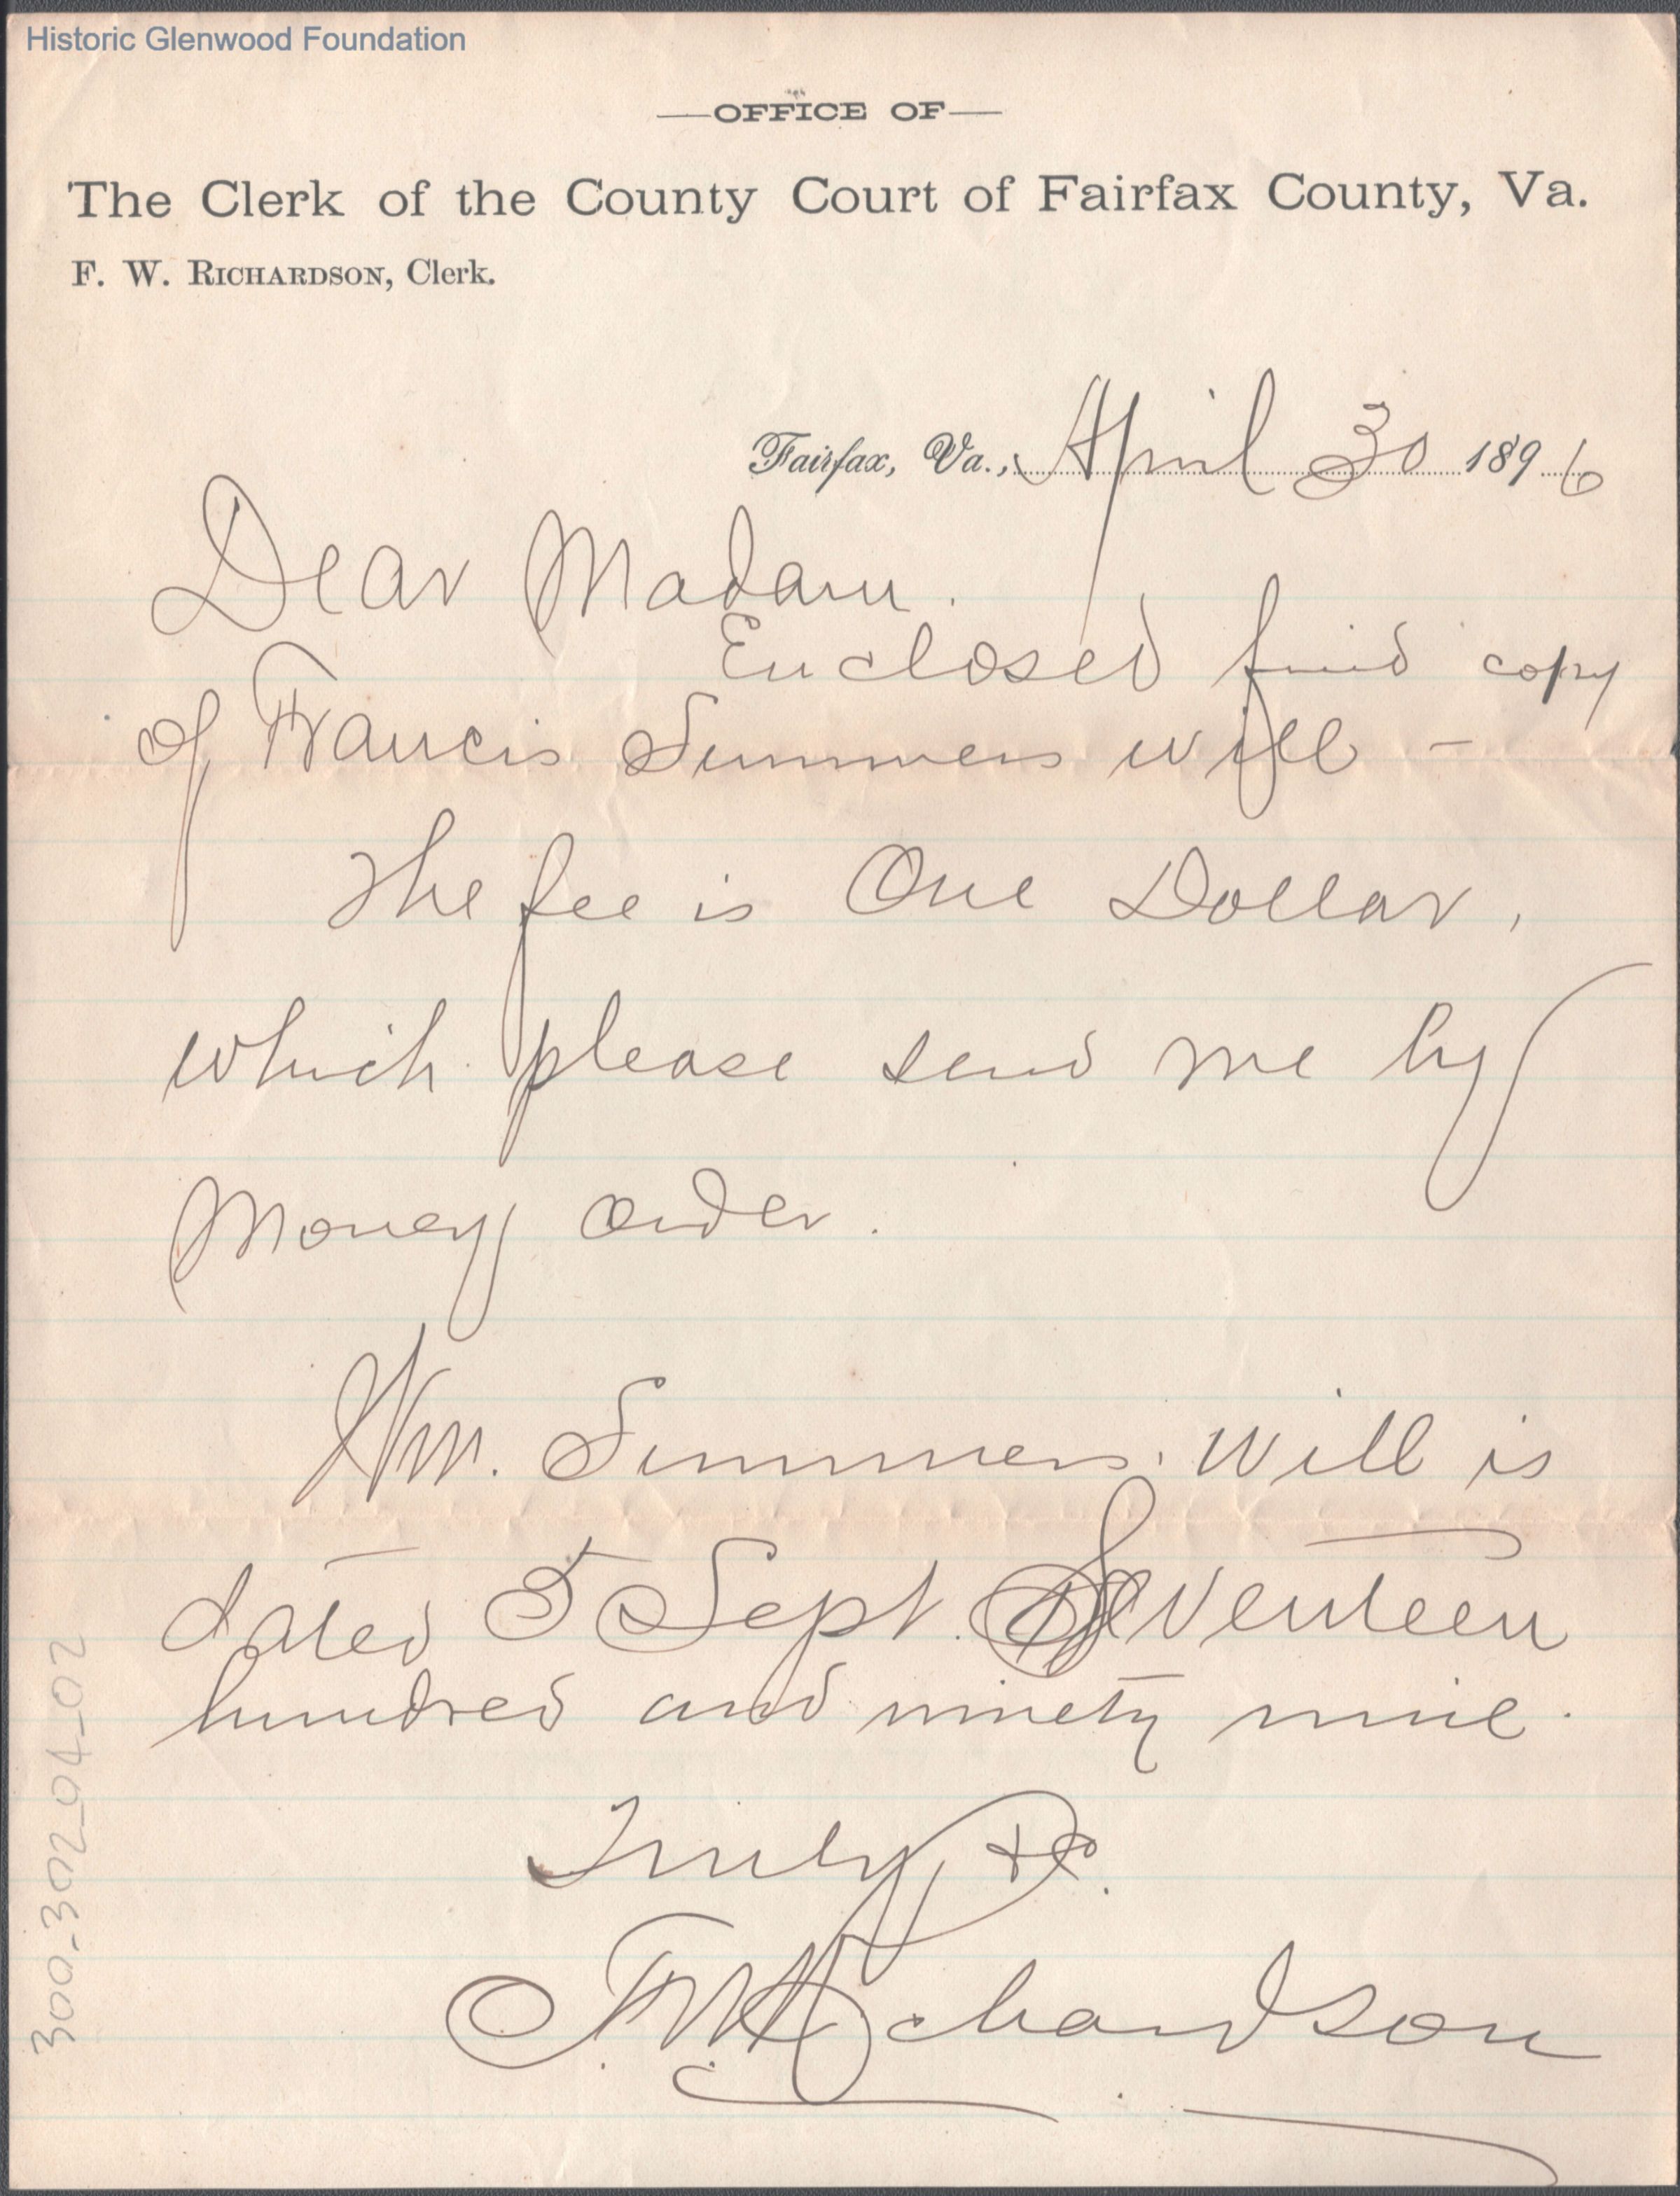 Historic Glenwood Foundation
—OFFICE OF—
The Clerk of the County Court of Fairfax County, Va.
F. W. RICHARDSON, Clerk.
Fairfax, Va., April 30 1896
Dear Madam.
Enclosed find copy
of Francis Summers will –
The fee is One Dollar,
which please send me by
Money order.
Wm. Summers. will is
dated 5 Sept. Seventeen
hundred and ninety nine.
Truly &c.
F. W. Richardson
300_302_04_02